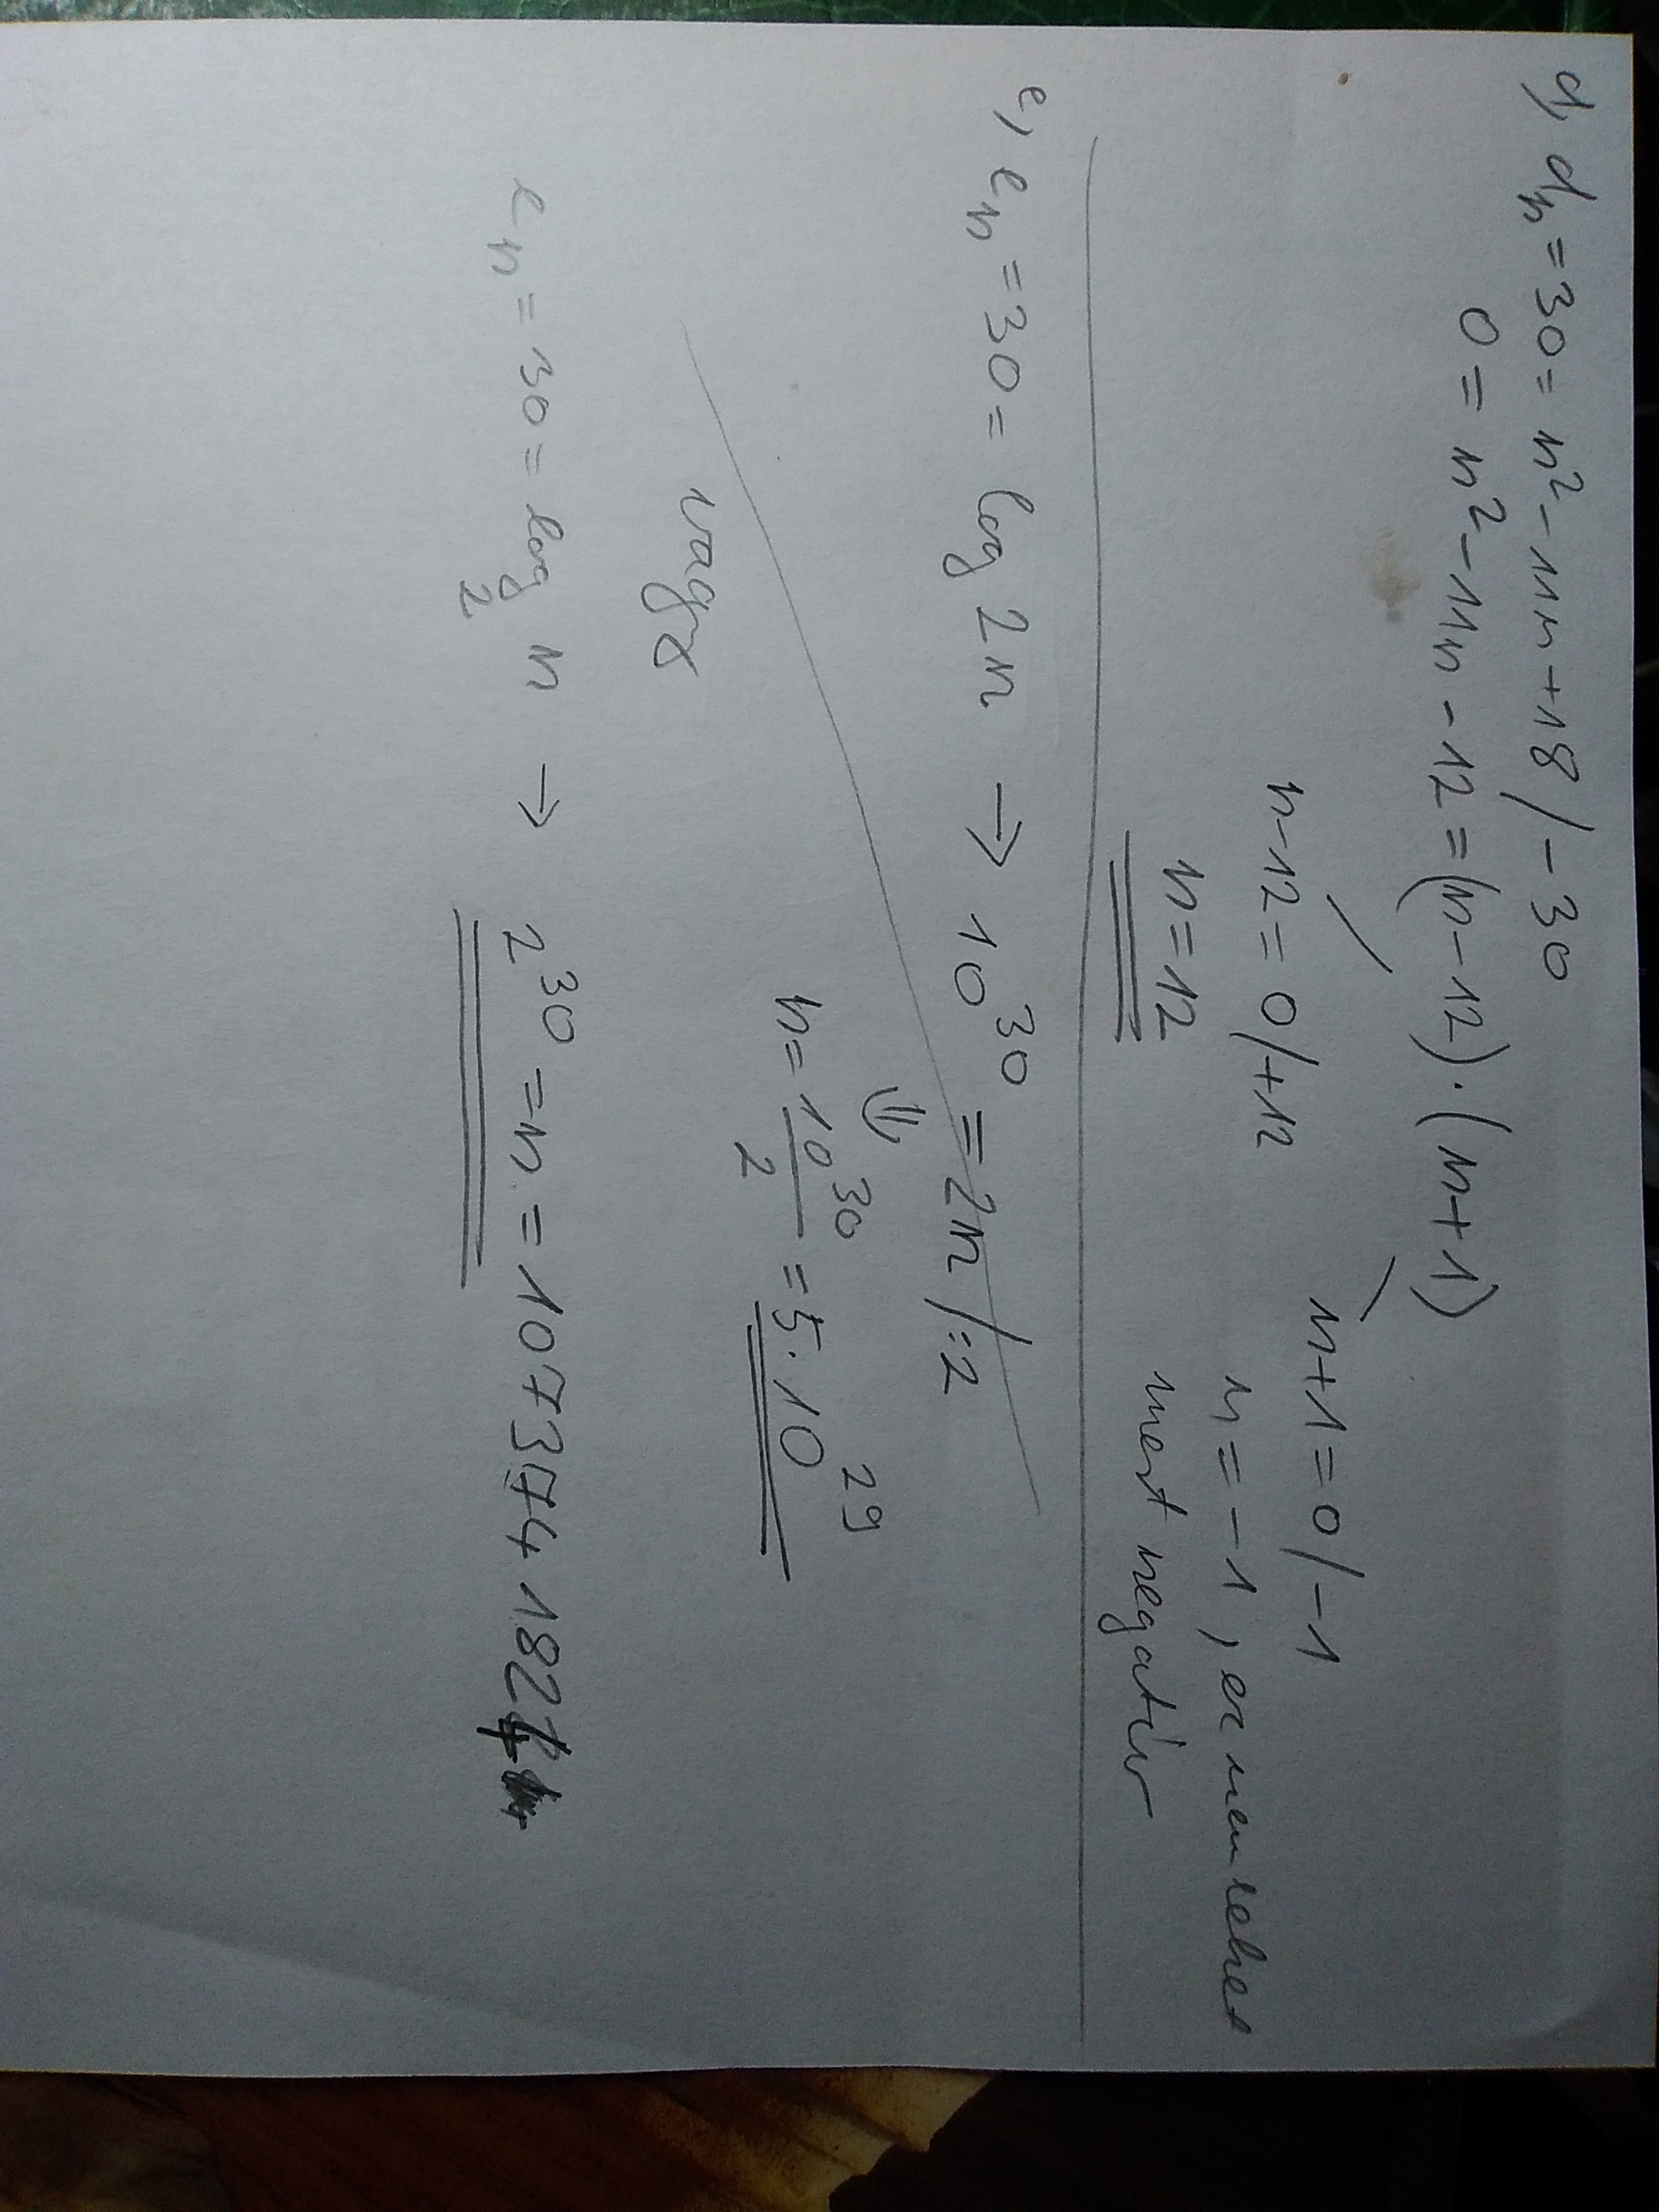 d, dn = 30 = n² - 11n + 18 / -30
0 = n² - 11n - 12 = (n - 12) · (n + 1)
n - 12 = 0 / +12
n = 12
n + 1 = 0 / -1
n = -1, ez nem lehet
mert negatív
e, en = 30 = log 2n → 10³⁰ = 2n / :2
⇓
n = 10³⁰/2 = 5 · 10²⁹
vagy
en = 30 = log₂ n → 2³⁰ = n = 107374182